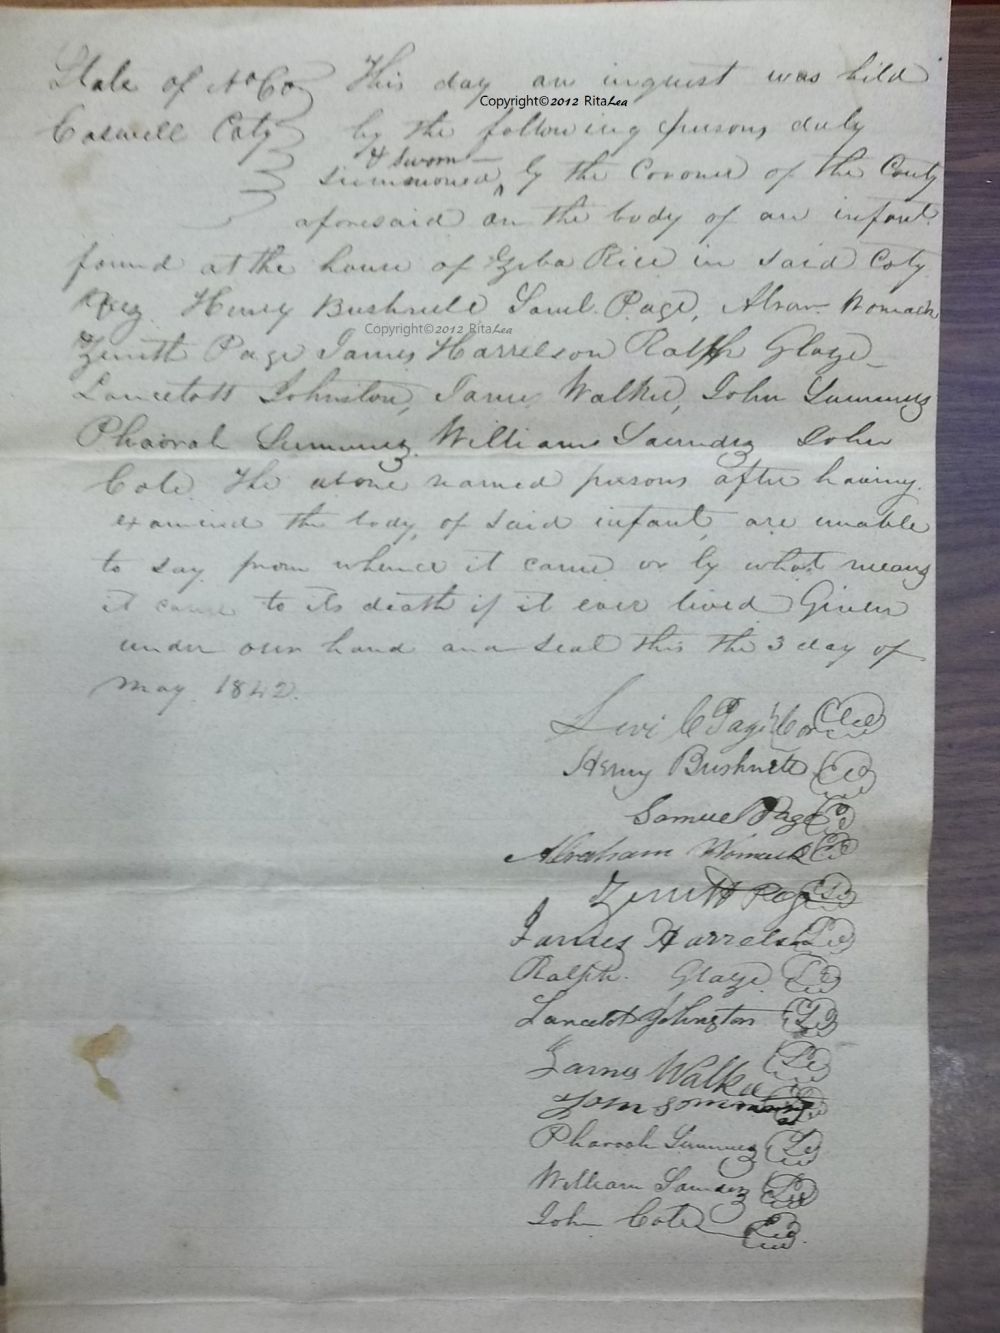 State of No Ca This day an inquest was hild
Copyright©2012 RitaLea
Caswell Coty by the following persons duly
& sworn
summoned by the Coroner of the Couty
aforesaid on the body of an infant
found at the house of Zeba Rice in said Coty
Viz Henry Bushnell Saml. Page, Abram Womack
Copyright©2012 RitaLea
Zerritt Page James Harrelson Ralph Glaze
Lancelott Johnston, James Walker, John Summers
Pharoah Summers William Saunders John
Cole. The above named persons after having
examined the body of said infant are unable
to say from whence it came or by what means
it came to its death if it ever lived Given
under our hand and seal this the 3 day of
May 1842.
Levi C Page Cor
Henry Bushnell
Samuel Page
Abraham Womack
Zerritt Page
James Harrelson
Ralph Glaze
Lancelot Johnston
James Walker
Pharoah Summers
William Saunders
John Cole